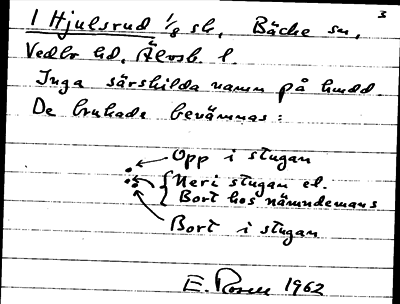 3
I Hjulsrud 1/8 sk, Bäcke sn,
Vedbo hd, Älvsb. l.
Inga särskilda namn på hmdd.
De brukade benämnas:
Opp i stugan
Neri stugan el.
Bort hos nämndemans
Bort i stugan
E. Rosell 1962